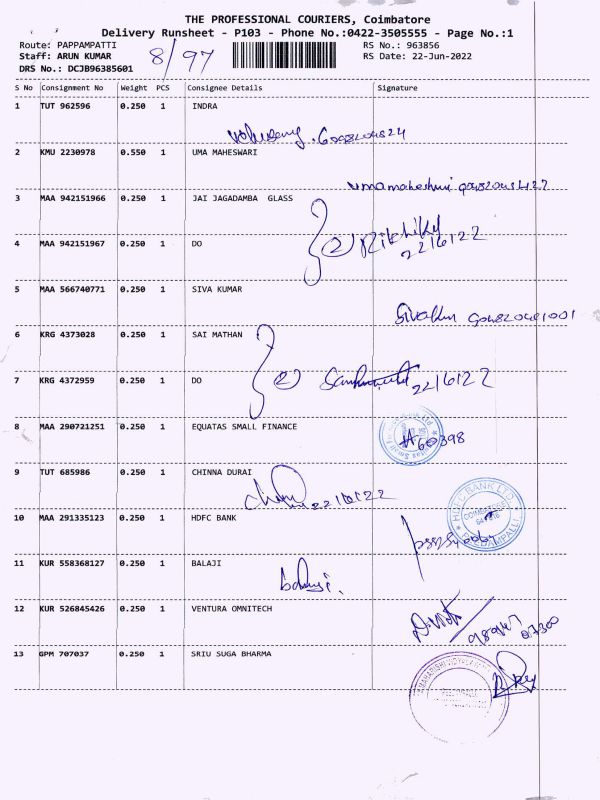 THE PROFESSIONAL COURIERS, Coimbatore
Delivery Runsheet - P103 - Phone No.:0422-3505555 - Page No.:1
Route: PAPPAMPATTI
RS No.: 963856
Staff: ARUN KUMAR
8/97
RS Date: 22-Jun-2022
DRS No.: DCJB96385601
S No Consignment No Weight PCS Consignee Details Signature
1 TUT 962596 0.250 1 INDRA
2 KMU 2230978 0.550 1 UMA MAHESWARI
umamaheshwari
3 MAA 942151966 0.250 1 JAI JAGADAMBA GLASS
(2) 22/6/22
4 MAA 942151967 0.250 1 DO
5 MAA 566740771 0.250 1 SIVA KUMAR
6 KRG 4373028 0.250 1 SAI MATHAN
(2) 22/6/22
7 KRG 4372959 0.250 1 DO
8 MAA 290721251 0.250 1 EQUATAS SMALL FINANCE
60398
9 TUT 685986 0.250 1 CHINNA DURAI
22/6/22
10 MAA 291335123 0.250 1 HDFC BANK
HDFC BANK LTD
COIMBATORE
11 KUR 558368127 0.250 1 BALAJI
balaji.
12 KUR 526845426 0.250 1 VENTURA OMNITECH
13 GPM 707037 0.250 1 SRIU SUGA BHARMA